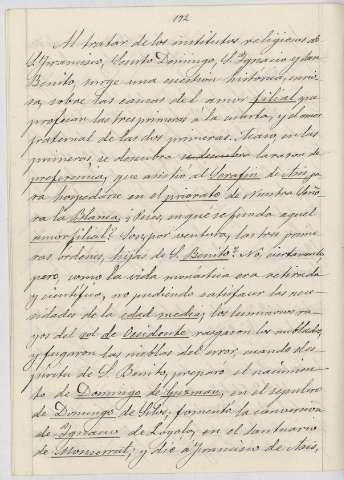 192
Al tratar de los institutos religiosos de
S. Francisco, Santo Domingo, S. Ignacio y San
Benito, surge una cuestión histórica, curio-
sa, sobre las causas del amor filial que
profesan las tres primeras á la cuarta, y el amor
fraternal de las dos primeras. Acaso, en las
primeras, se descubra la razon de
preferencia, que asistió al Serafin de Asis pa
ra hospedarse en el priorato de Nuestra Seño
ra la Blanca. Pero, en qué se funda aquel
amor filial? Son, por ventura, las tres prime
ras órdenes, hijas de S. Benito? No, ciertamente;
pero, como la vida monástica era retirada
y científica, no pudiendo satisfacer las nece
sidades de la edad media, los luminosos ra
yos del sol de Occidente rasgaron los nublados,
y fugaron las nieblas del error, cuando el es
píritu de S. Benito, preparó el nacimien
to de Domingo de Guzman, en el sepulcro
de Domingo de Silos; fomentó la conversion
de Ignacio de Loyola, en el santuario
de Monserrat; y dió a Francisco de Asis,